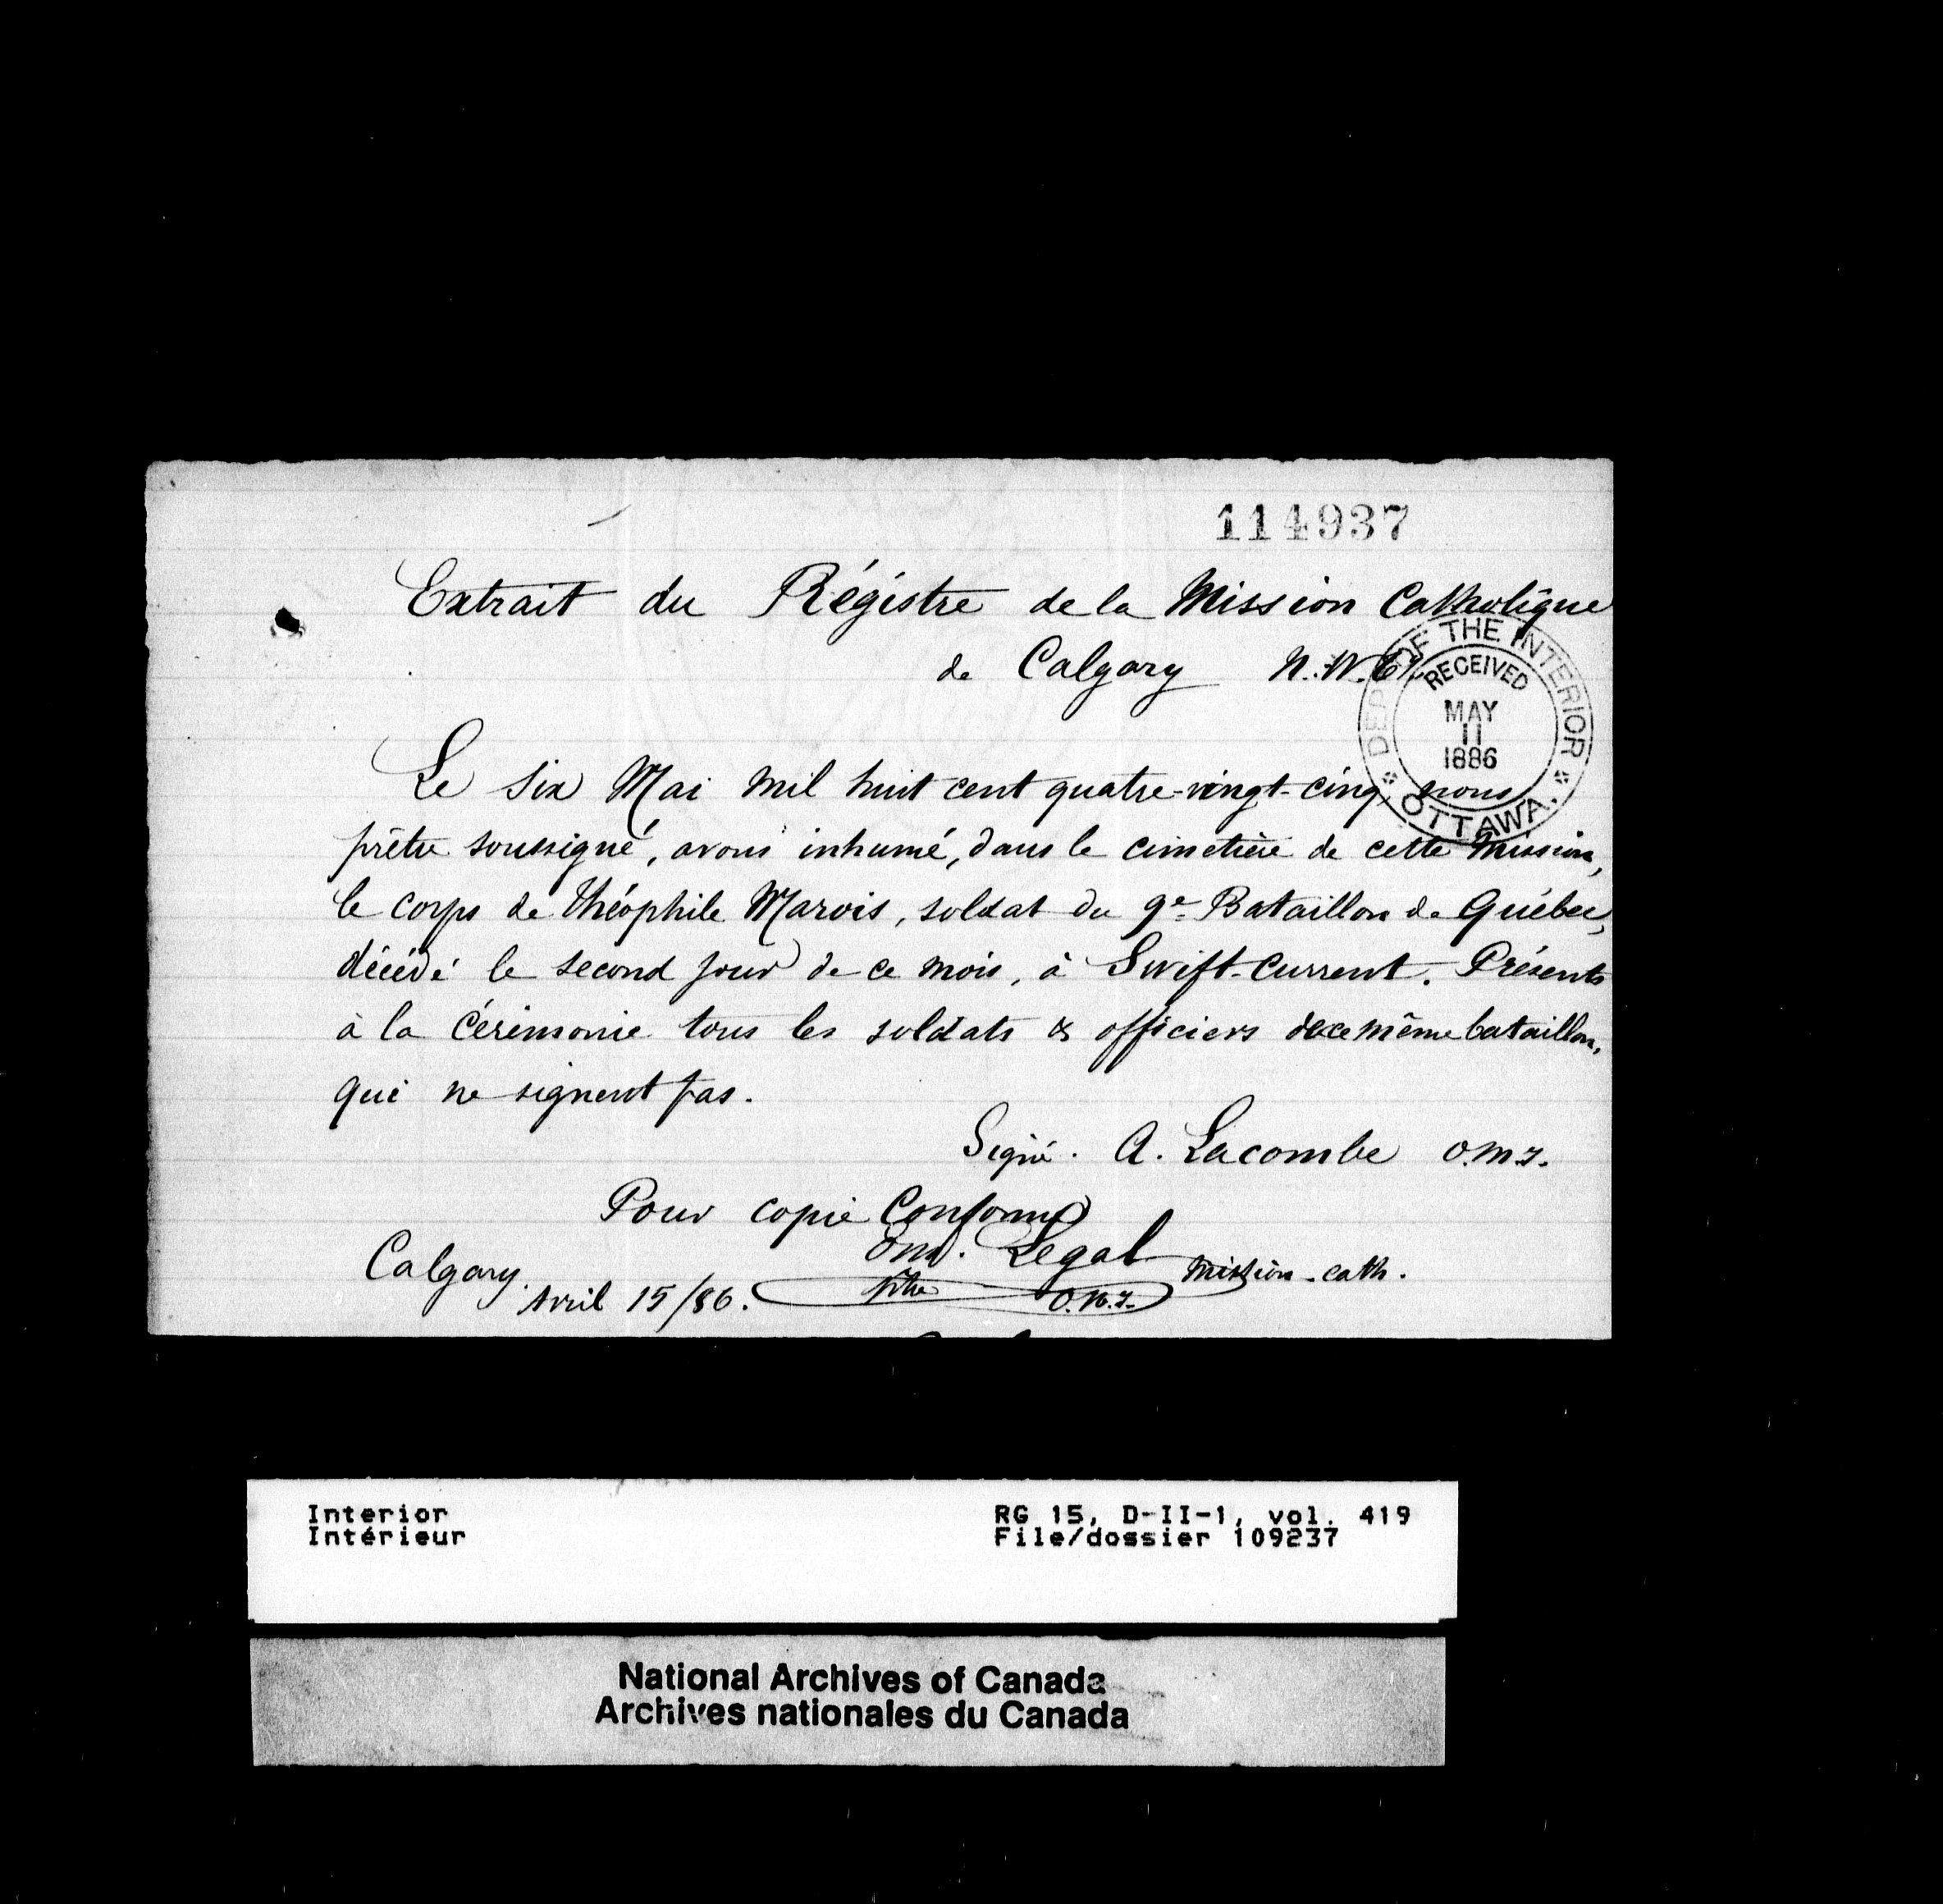 114937
Extrait du Régistre de la Mission Catholique
de Calgary N.W.T.
DEPT OF THE INTERIOR
RECEIVED
MAY
11
1886
OTTAWA.
Le six Mai mil huit cent quatre-vingt-cinq, nous
prêtre soussigné, avons inhumé, dans le cimetière de cette Mission,
le corps de Théophile Marois, soldat du 9e Bataillon de Québec,
décédé le second jour de ce mois, à Swift-Current. Présents
à la Cérémonie tous les soldats & officiers de ce même bataillon,
qui ne signent pas.
Signé. A. Lacombe O.M.I.
Pour copie Conforme
Em. Legal
Mission-cath.
Calgary.
Avril 15/86.
ptre O.M.I.
Interior
Intérieur
RG 15, D-II-1, vol. 419
File/dossier 109237
National Archives of Canada
Archives nationales du Canada